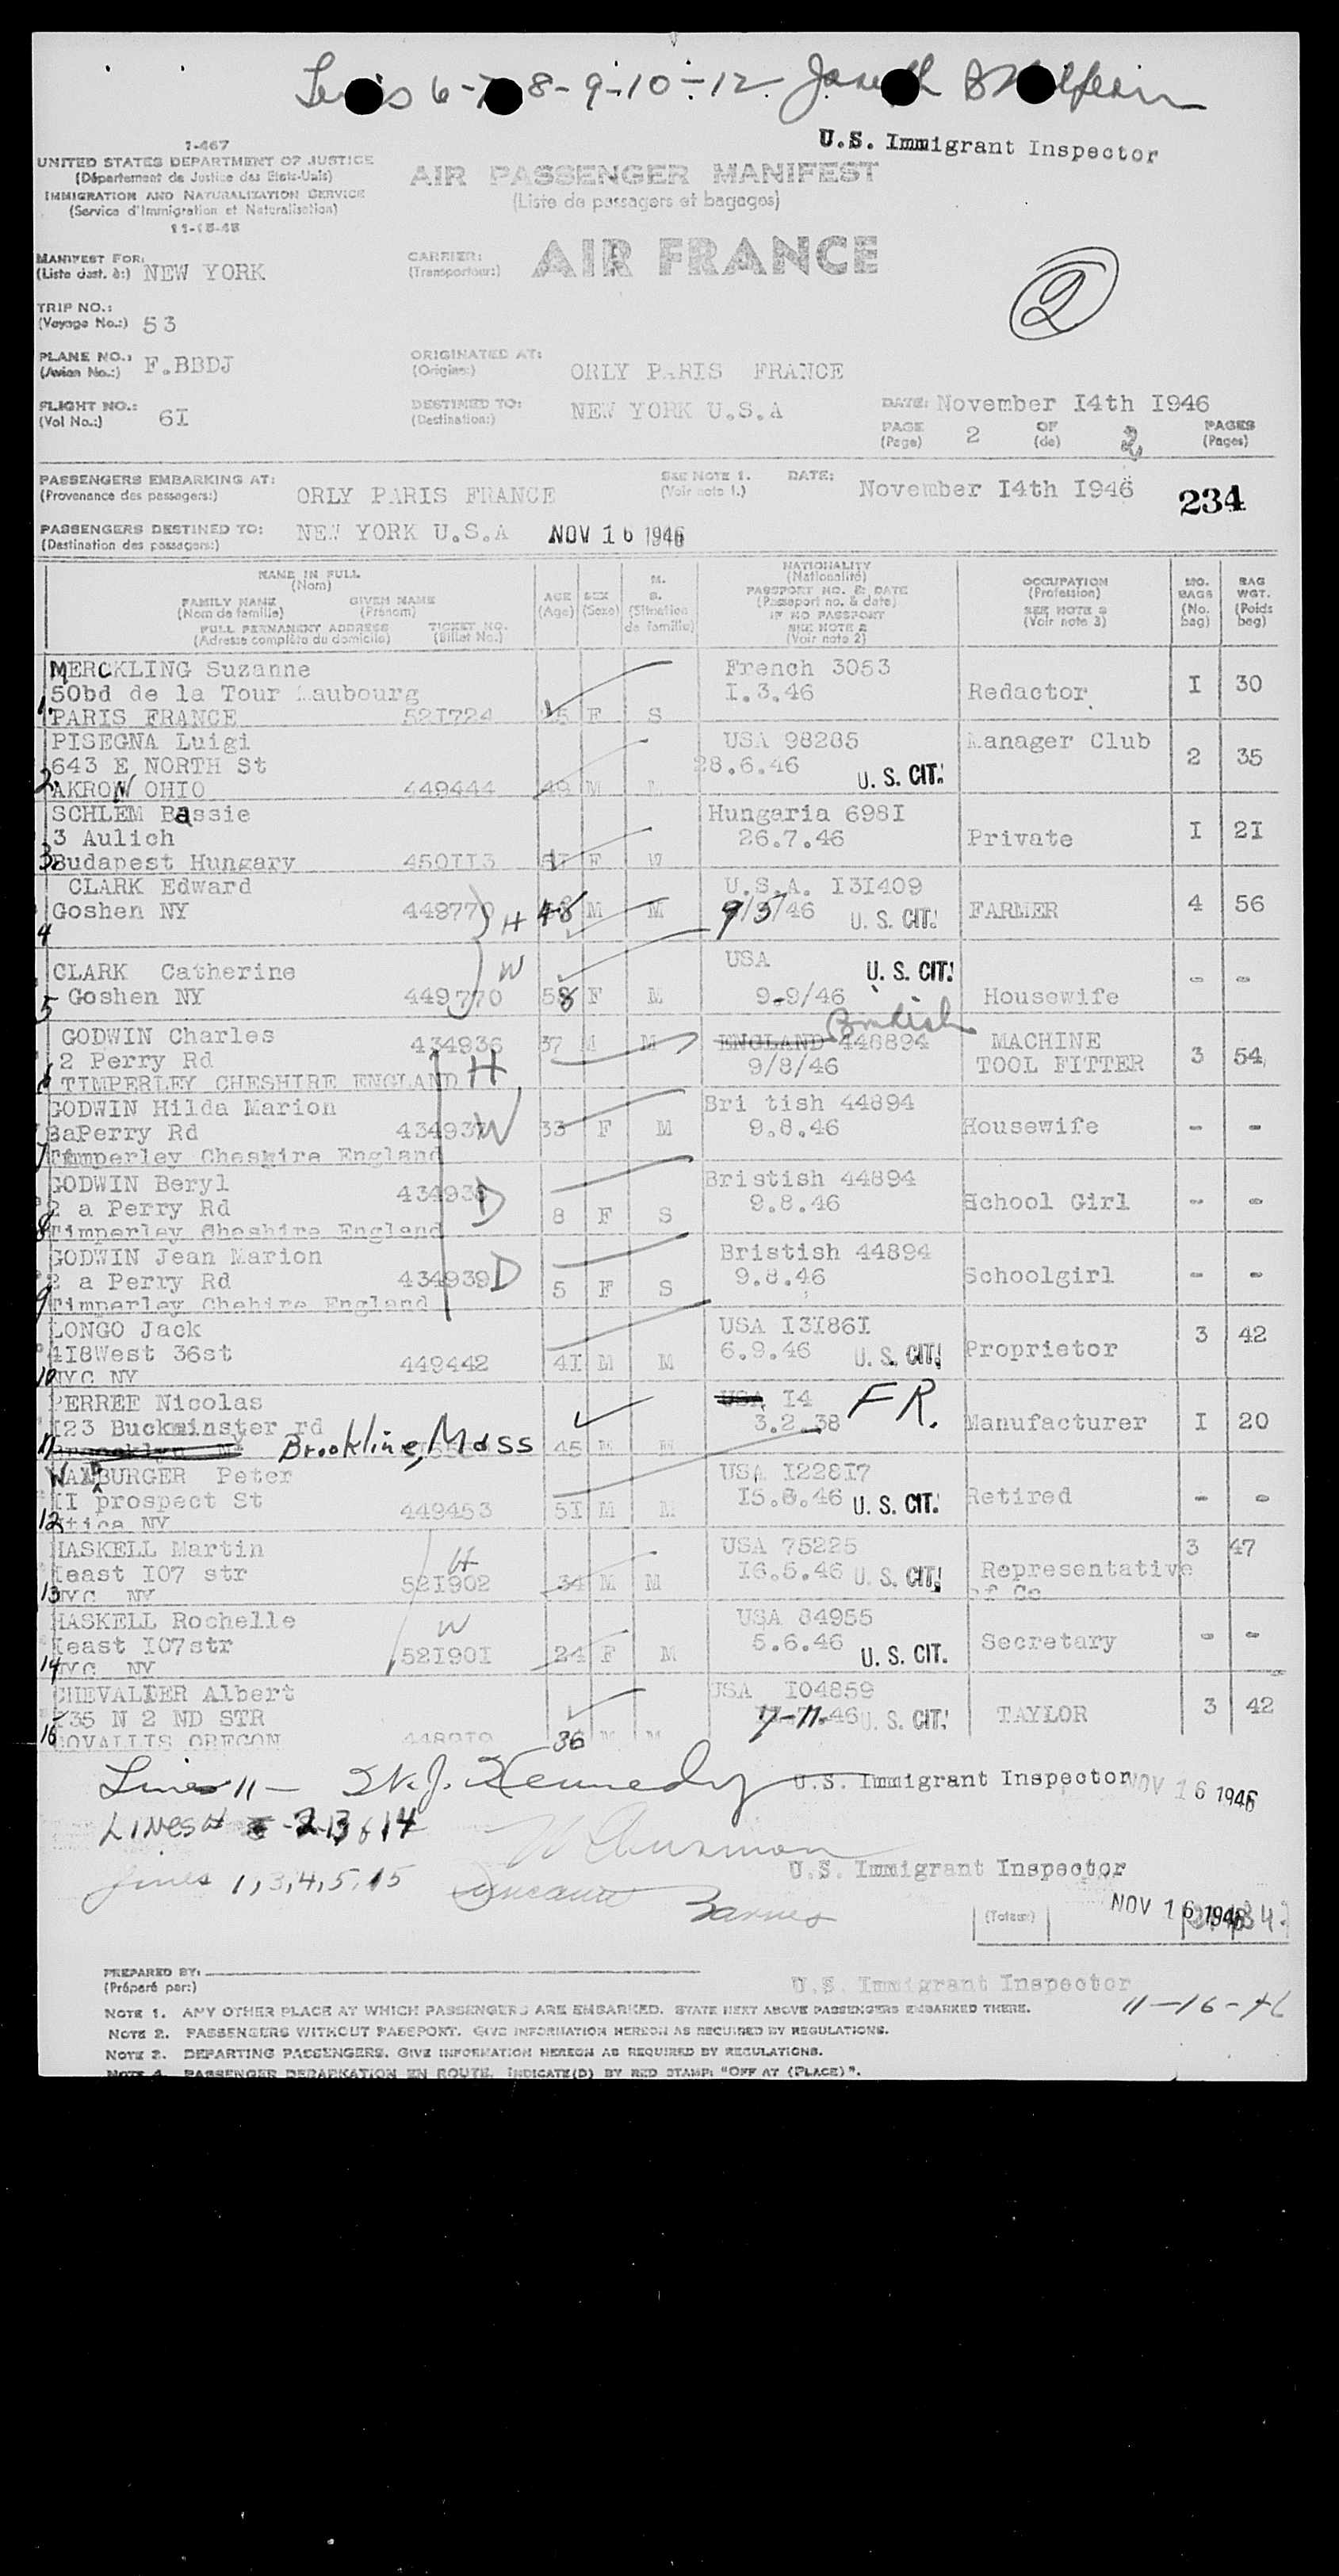 6-7-8-9-10-12. Joseph
U.S. Immigrant Inspector
I-467
UNITED STATES DEPARTMENT OF JUSTICE
(Département de Justice des Etats-Unis)
IMMIGRATION AND NATURALIZATION SERVICE
(Service d'Immigration et Naturalisation)
11-15-45
AIR PASSENGER MANIFEST
(Liste de passagers et bagages)
MANIFEST FOR:
(Liste dest. à:) NEW YORK
CARRIER:
(Transporteur:)
AIR FRANCE
2
TRIP NO.:
(Voyage No.:) 53
PLANE NO.:
(Avion No.:) F.BBDJ
ORIGINATED AT:
(Origine:) ORLY PARIS FRANCE
FLIGHT NO.:
(Vol No.:) 6I
DESTINED TO:
(Destination:) NEW YORK U.S.A
DATE: November I4th I946
PAGE
(Page) 2
OF
(de) 2
PAGES
(Pages)
PASSENGERS EMBARKING AT:
(Provenance des passagers:) ORLY PARIS FRANCE
SEE NOTE 1.
(Voir note 1.)
DATE: November I4th I946
234
PASSENGERS DESTINED TO:
(Destination des passagers:) NEW YORK U.S.A NOV 16 1946
NAME IN FULL
(Nom)
FAMILY NAME GIVEN NAME
(Nom de famille) (Prénom)
FULL PERMANENT ADDRESS TICKET NO.
(Adresse complète du domicile) (Billet No.)
AGE
(Age)
SEX
(Sexe)
M.
S.
(Situation
de famille)
NATIONALITY
(Nationalité)
PASSPORT NO. & DATE
(Passeport no. & date)
IF NO PASSPORT
SEE NOTE 2
(Voir note 2)
OCCUPATION
(Profession)
SEE NOTE 3
(Voir note 3)
NO.
BAGS
(No.
bag)
BAG
WGT.
(Poids
bag)
MERCKLING Suzanne French 3053
50bd de la Tour Maubourg I.3.46 Redactor I 30
1 PARIS FRANCE 52I724 F S
PISEGNA Luigi USA 98285 Manager Club
643 E NORTH St 28.6.46 U. S. CIT. 2 35
2 AKRON OHIO 449444 49 M
SCHLEM Bassie Hungaria 698I
3 Aulich 26.7.46 Private I 2I
3 Budapest Hungary 450II3 F
CLARK Edward U.S.A. I3I409
Goshen NY 449770 H 48 M M 9/5/46 U. S. CIT. FARMER 4 56
4
CLARK Catherine W USA U. S. CIT. - -
5 Goshen NY 449770 58 F M 9-9/46 Housewife
British
GODWIN Charles 434936 37 M M ENGLAND 448894 MACHINE
2 Perry Rd 9/8/46 TOOL FITTER 3 54
6 TIMPERLEY CHESHIRE ENGLAND H
GODWIN Hilda Marion Bri tish 44894
Perry Rd 434937 W 33 F M 9.8.46 Housewife - -
7 Timperley Cheshire England
GODWIN Beryl 434938 D Bristish 44894
2 a Perry Rd 8 F S 9.8.46 School Girl - -
8 Timperley Cheshire England
GODWIN Jean Marion Bristish 44894
2 a Perry Rd 434939 D 5 F S 9.8.46 Schoolgirl - -
9 Timperley Chehire England
LONGO Jack USA I3I86I 3 42
4I8West 36st 449442 4I M M 6.9.46 U. S. CIT. Proprietor
10 NYC NY
PERREE Nicolas USA I4 FR.
I23 Buckminster rd 3.2.38 Manufacturer I 20
11 Brookline, Mass 45 M M
WAMBURGER Peter USA I228I7
II prospect St 449453 5I M M I5.8.46 U. S. CIT. Retired - -
12 Utica NY
HASKELL Martin USA 75225 3 47
Ieast I07 str H 52I902 34 M M I6.5.46 U. S. CIT. Representative
13 NYC NY of Co
HASKELL Rochelle W USA 84955
Ieast I07str 52I90I 24 F M 5.6.46 U. S. CIT. Secretary - -
14 NYC NY
CHEVALIER Albert USA I04859
I35 N 2 ND STR 46 U. S. CIT. TAYLOR 3 42
15 COVALLIS OREGON 36 M M
Lines 11 - W.J. Kennedy U.S. Immigrant Inspector NOV 16 1946
LINES 13 14
U.S. Immigrant Inspector
Lines 1,3,4,5,15 Barnes
(Totaux) NOV 16 1946
PREPARED BY:
(Préparé par:)
U.S. Immigrant Inspector
11-16-46
NOTE 1. ANY OTHER PLACE AT WHICH PASSENGERS ARE EMBARKED. STATE NEXT ABOVE PASSENGERS EMBARKED THERE.
NOTE 2. PASSENGERS WITHOUT PASSPORT. GIVE INFORMATION HEREON AS REQUIRED BY REGULATIONS.
NOTE 3. DEPARTING PASSENGERS. GIVE INFORMATION HEREON AS REQUIRED BY REGULATIONS.
NOTE 4. PASSENGER DEBARKATION EN ROUTE. INDICATE(D) BY RED STAMP: "OFF AT (PLACE)".